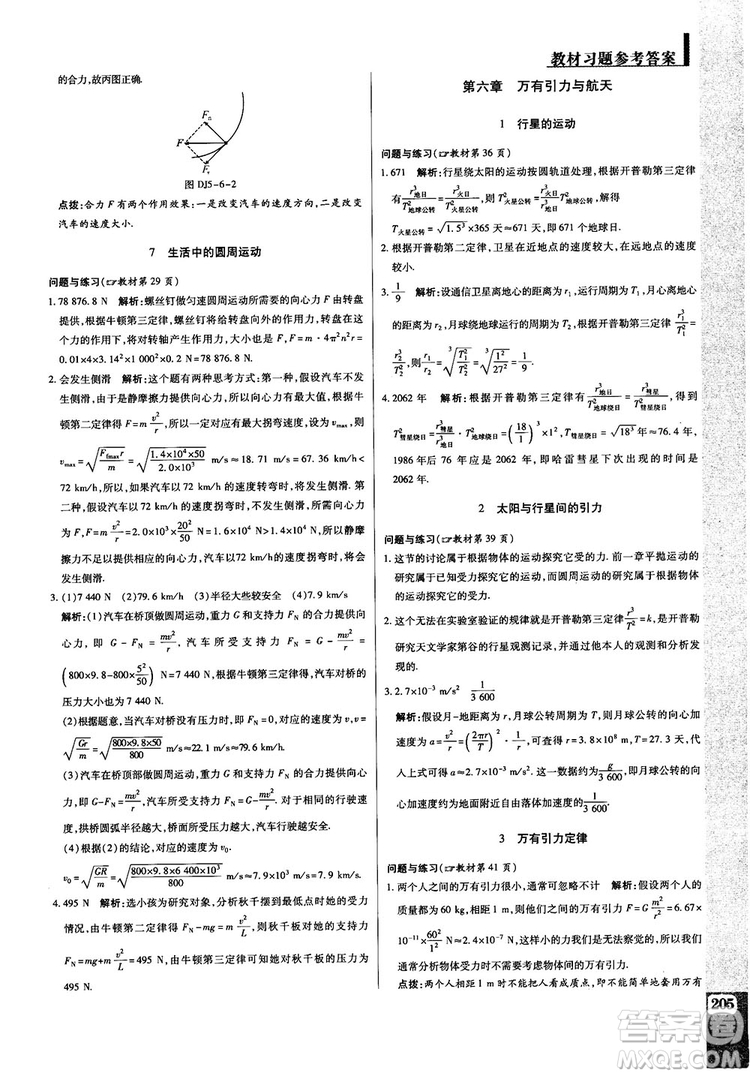 教材习题参考答案
的合力,故丙图正确.
Fₙ
F
Fₜ
图 DJ5-6-2
点拨:合力 F 有两个作用效果:一是改变汽车的速度方向,二是改变
汽车的速度大小.
7 生活中的圆周运动
问题与练习(☞教材第 29 页)
1. 78 876.8 N 解析:螺丝钉做匀速圆周运动所需要的向心力 F 由转盘
提供,根据牛顿第三定律,螺丝钉将给转盘向外的作用力,转盘在这
个力的作用下,将对转轴产生作用力,大小也是 F,F=m·4π²n²r=
0.01×4×3.14²×1 000²×0.2 N=78 876.8 N.
2. 会发生侧滑 解析:这个题有两种思考方式:第一种,假设汽车不发
生侧滑,由于是静摩擦力提供向心力,所以向心力有最大值,根据牛
顿第二定律得 F=m v²/r,所以一定对应有最大拐弯速度,设为 vₘₐₓ,则
vₘₐₓ=√(F_fmax r/m)=√(1.4×10⁴×50/2.0×10³) m/s≈18.71 m/s=67.36 km/h<
72 km/h,所以,如果汽车以 72 km/h 的速度拐弯时,将会发生侧滑. 第
二种,假设汽车以 72 km/h 的速度拐弯时,不发生侧滑,所需向心力
为 F,F=m v²/r=2.0×10³×20²/50 N=1.6×10⁴ N>1.4×10⁴ N,所以静摩
擦力不足以提供相应的向心力,汽车以 72 km/h 的速度拐弯时,将会
发生侧滑.
3. (1)7 440 N (2)22.1 m/s (3)半径大些较安全 (4)7.9×10³ m/s
解析:(1)汽车在桥顶做圆周运动,重力 G 和支持力 Fɴ 的合力提供向
心力,即 G-Fɴ=mv²/r,汽车所受支持力 Fɴ=G-mv²/r=
(800×9.8-800×5²/50) N=7 440 N,根据牛顿第三定律得,汽车对桥的
压力大小也为 7 440 N.
(2)根据题意,当汽车对桥顶没有压力时,即 Fɴ=0,对应的速度为 v,v=
√(Gr/m)=√(800×9.8×50/800) m/s≈22.1 m/s.
(3)汽车在桥顶部做圆周运动,重力 G 和支持力 Fɴ 的合力提供向心
力,即 G-Fɴ=mv²/r,汽车所受支持力 Fɴ=G-mv²/r,对于相同的行驶速
度,拱桥圆弧半径越大,桥面所受压力越大,汽车行驶越安全.
(4)根据(2)的结论,对应的速度为 v₀,
v₀=√(GR/m)=√(800×9.8×6 400×10³/800) m/s≈7.9×10³ m/s.
4. 495 N 解析:选小孩为研究对象,分析秋千摆到最低点时她的受力
情况,由牛顿第二定律可知 Fɴ-mg=m v²/L,所以秋千板对她的支持力
Fɴ=mg+m v²/L=495 N,由牛顿第三定律可知她对秋千板的压力也为
495 N.
第六章 万有引力与航天
1 行星的运动
问题与练习(☞教材第 36 页)
1. 671 解析:行星绕太阳的运动按圆轨道处理,根据开普勒第三定律
有 r³地日/T²地球公转=r³火日/T²火星公转,所以 T²火星公转=r³火日/r³地日·T²地球公转,解得
T火星公转=√1.5³×365 天≈671 天,所以火星上的一年相当于 671 个地球日.
2. 根据开普勒第二定律,卫星在近地点的速度较大,在远地点的速度
较小.
3. 1/9 解析:设通信卫星离地心的距离 r₁,月球离地心的距离 r₂,根据
开普勒第三定律,月球绕地球运动的周期约为 27 天,所以有 r₁/r₂=
³√(r₁³/r₂³)=³√(T₁²/T₂²)=³√(1/27²)=1/9.
4. 2062 年 解析:根据开普勒第三定律有 r³地日/T²地球绕日=r³彗星/T²彗星绕日,得到
T²彗星绕日=r³彗星/r³地日·T²地球绕日=(18/1)³×1²,T彗星绕日=√18³ 年≈76.4 年,
1986年加上76年是2062年,即哈雷彗星下次出现的时间是
2062 年.
2 太阳与行星间的引力
问题与练习(☞教材第 39 页)
1. 这节的讨论属于根据物体的运动探究它受的力. 前一章平抛运动的
研究属于已知受力探究它的运动,而圆周运动的研究属于根据物体
的运动探究它受的力.
2. 这个无法在实验室验证的规律就是开普勒第三定律 r³/T²=k,是开普勒
研究天文学家第谷的行星观测记录,并通过他本人的观测和分析发
现的.
3. 2.7×10⁻³ m/s² 1/3 600
解析:假设月地距离为 r,月球公转周期为 T,则月球公转的向心加
速度为 a=v²/r=(2πr/T)²·1/r,代入数据解得 a=2.7×10⁻³ m/s²,代
入上式可得到,月球公转的向心加速度近似等于 g/3 600,即月球公转的向
心加速度约为地面附近自由落体加速度的 1/3 600.
3 万有引力定律
问题与练习(☞教材第 41 页)
1. 两个人之间的万有引力很小,通常可忽略不计 解析:假设两个人的
质量都为 60 kg,相距 1 m,则他们之间的万有引力可估算:F=G m²/r²=6.67×
10⁻¹¹×60²/1² N≈2.4×10⁻⁷ N,这样小的力我们是无法察觉的,所以我们
通常分析物体受力时不需要考虑物体间的万有引力.
点拨:两个人之间相距 1 m 时不能把人看成质点,不能简单地套用万有引
205
答案圈
MXQE.COM